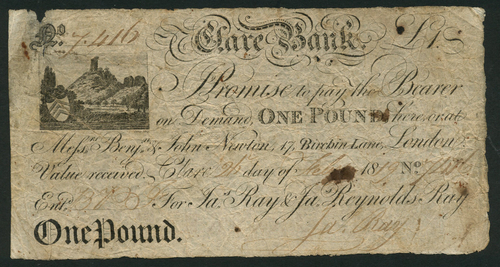 No. 7,416 Clare Bank. £1:-
I Promise to pay the Bearer
on Demand, ONE POUND here, or at
Messrs. Benjn. & John Newton, 17, Birchin Lane, London
Value received. Clare day of 18 No. 7416
Entd. For Jas. Ray & Jas. Reynolds Ray
One Pound. Jas. Ray